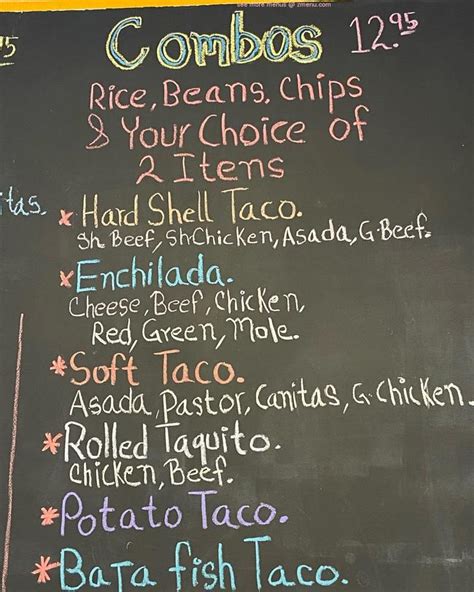 see more menus @ zmenu.com
5
Combos 12.95
Rice, Beans, Chips
& Your Choice of
2 Itens
itas.
* Hard Shell Taco.
Sh Beef, Sh Chicken, Asada, G. Beef.
* Enchilada.
Cheese, Beef, Chicken,
Red, Green, Mole.
* Soft Taco.
Asada, Pastor, Canitas, G. Chicken.
* Rolled Taquito.
Chicken, Beef.
* Potato Taco.
* BaJa fish Taco.